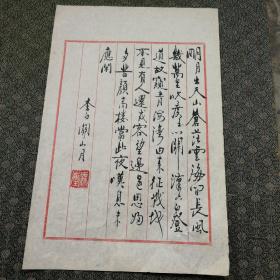 明月出天山蒼茫雲海間長風
幾萬里吹度玉門關漢下白登
道胡窺青海灣由來征戰地
不見有人還戍客望邊邑思歸
多苦顏高樓當此夜嘆息未
應閑
李白關山月